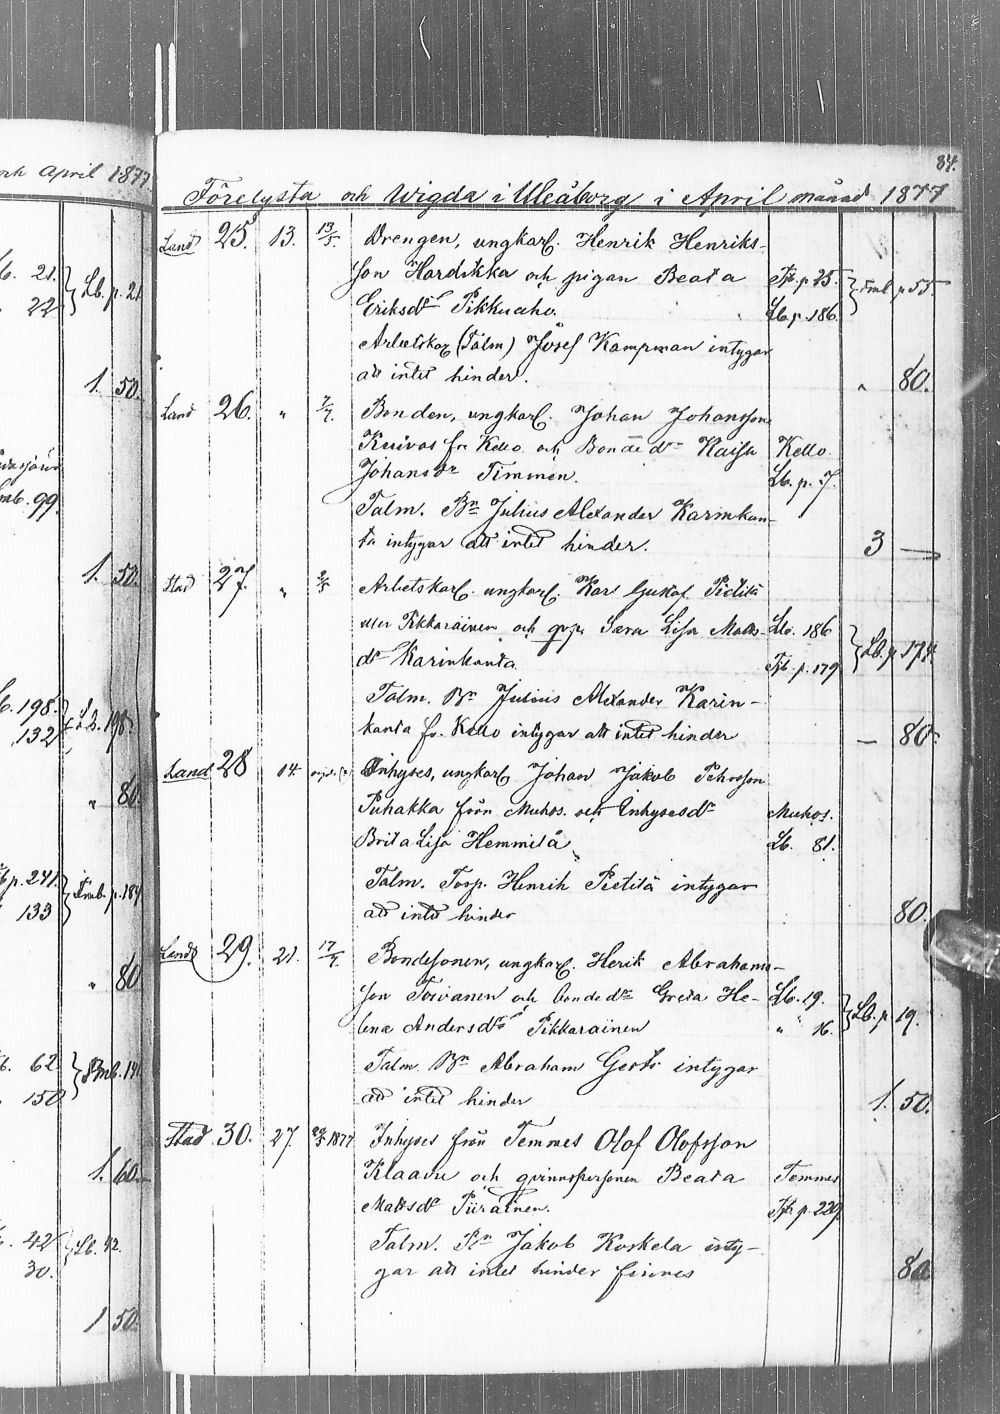 och April 1877
84.
Förelysta och Wigda i Uleåborg i April månad 1877
Land 25. 13. 13/5 Drengen, ungkarl. Henrik Henriks-
son Hardikka och pigan Beata Tjb. p. 25. p 55.
Eriksdr Pikkuaho. Lb. p. 186.
Arbetskarl (Talm) Josef Kampman intygar
att intet hinder. " 80.
Land 26. " 7/7. Bonden, ungkarl. Johan Johansson
Kuivas fr. Kello och Bonde dr Kaisa Kello
Johansdr Timmen. Lb. p. 7.
Talm. Bn Julius Alexander Karinkan-
ta intygar att intet hinder. 3 —
Stad 27. " 2/5 Arbetskarl. ungkarl. Karl Gustaf Pietilä
eller Pikkarainen och qvp. Sara Lisa Matts- Lb. 186 Lb. p. 174.
dr Karinkanta Tjb. p. 179
Talm. Bn Julius Alexander Karin-
kanta fr. Kello intygar att intet hinder — 80.
Land 28 14. Inhyses, ungkarl Johan Jakob Pehrsson
Puhakka från Muhos. och Inhysesdr Muhos.
Brita Lisa Hemmilä Lb. 81.
Talm. Torp. Henrik Pietilä intygar
att intet hinder 80.
Land 29. 21. 17/7. Bondesonen, ungkarl. Herik Abrahams-
son Toivanen och bonde dr Greta He- Lb. 19. Lb. p. 19.
lena Andersdr Pikkarainen " 16.
Talm. Bn Abraham Gerts intygar
att intet hinder 1. 50.
Stad 30. 27. 1877 Inhyses från Temmes Olof Olofsson
Klaavu och qvinnspersonen Beata Temmes
Mattsdr Piirainen. Tjb. p. 229.
Talm. Bn Jakob Koskela inty-
gar att intet hinder finnes 80.
21. Lb. p. 21
22
1. 50.
99.
1. 50.
198. Lb. 198.
132
" 80.
p. 241. p. 184
133
" 80
62. 141
150
1. 60.
42 Lb. 42.
30.
1 50.